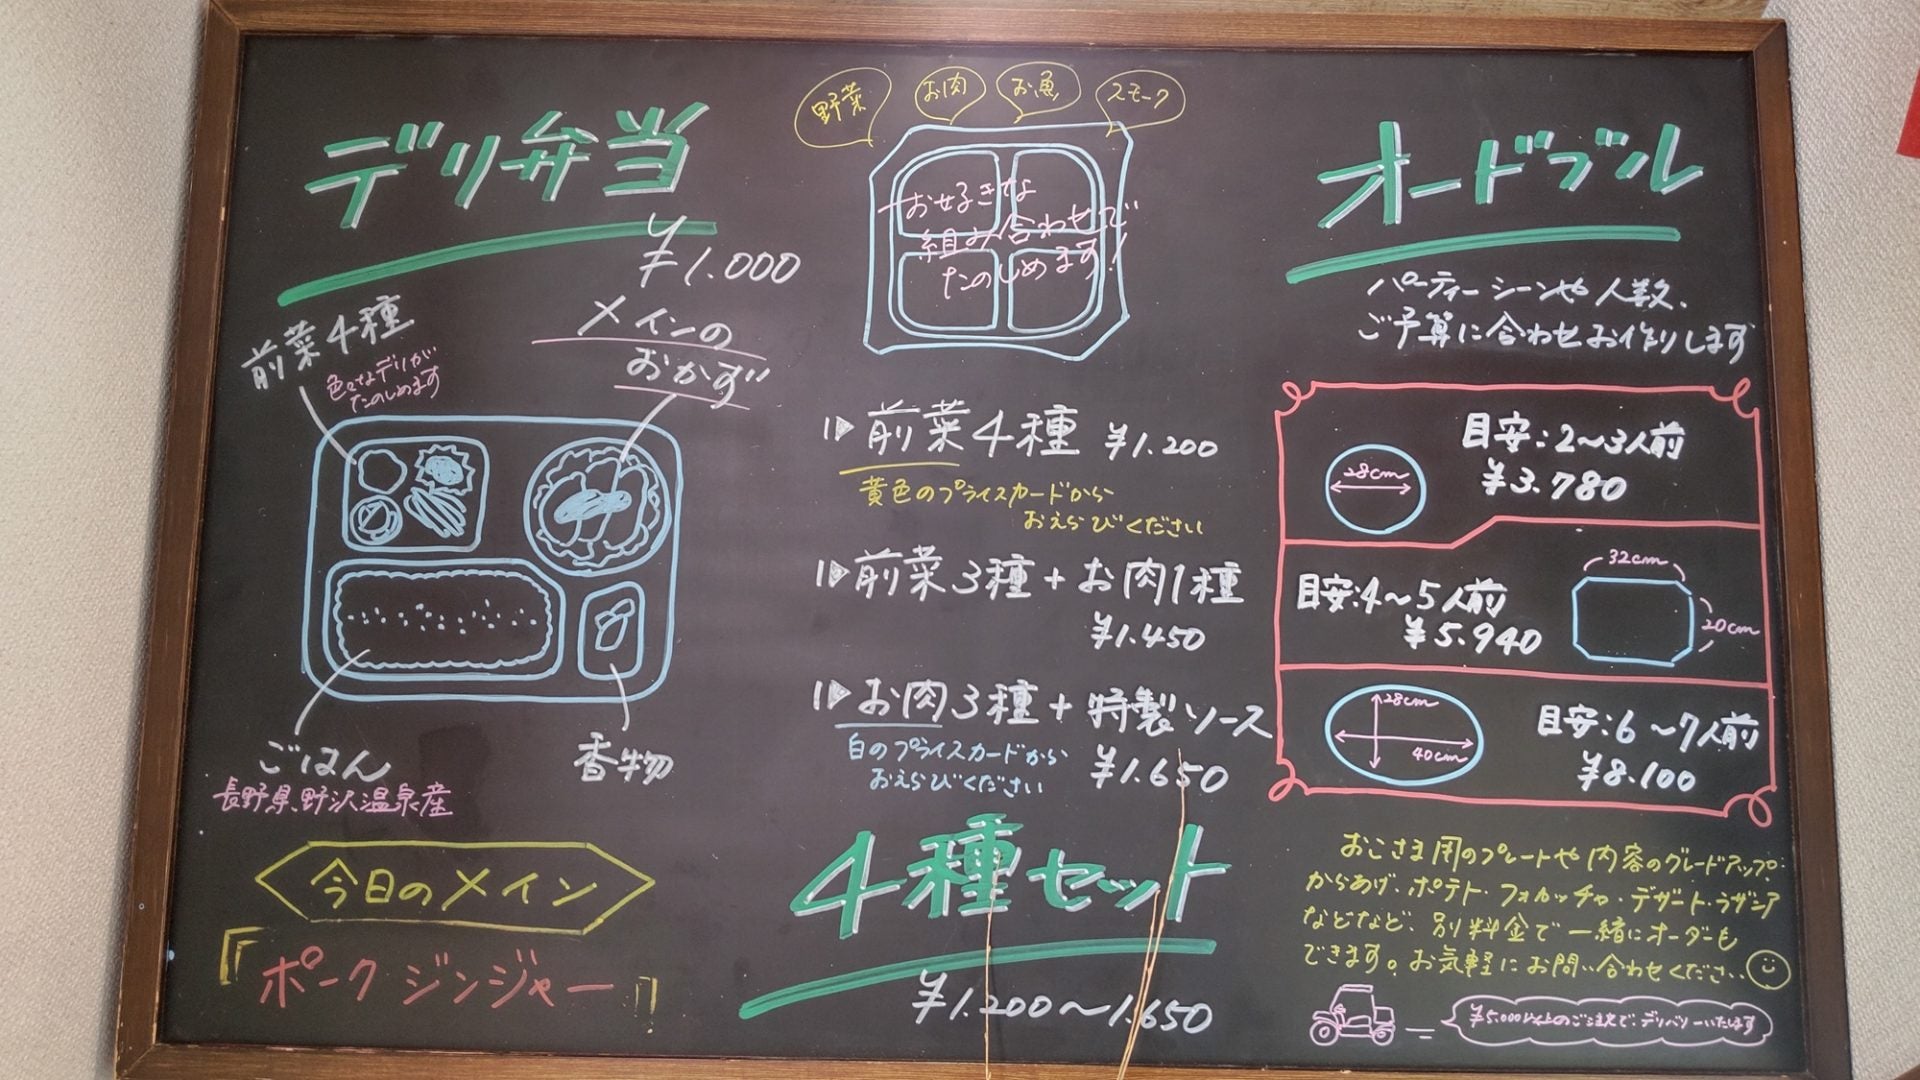 デリ弁当
¥1.000
前菜4種
色々なデリが
たのしめます
メインの
おかず
ごはん
長野県、野沢温泉産
香物
今日のメイン
『ポークジンジャー』
野菜
お肉
お魚
スモーク
お好きな
組み合わせで
たのしめます!
前菜4種 ¥1.200
黄色のプライスカードから
おえらびください
前菜3種+お肉1種
¥1.450
お肉3種+特製ソース
白のプライスカードから
おえらびください
¥1.650
4種セット
¥1.200〜1.650
オードブル
パーティーシーンや人数、
ご予算に合わせお作りします
28cm
目安:2〜3人前
¥3.780
目安:4〜5人前
¥5.940
32cm
20cm
28cm
40cm
目安:6〜7人前
¥8.100
おこさま用のプレートや内容のグレードアップ:
からあげ、ポテト・フォカッチャ・デザート・ラザニア
などなど、別料金で一緒にオーダーも
できます。お気軽にお問い合わせください
¥5.000以上のご注文で、デリバリーいたします